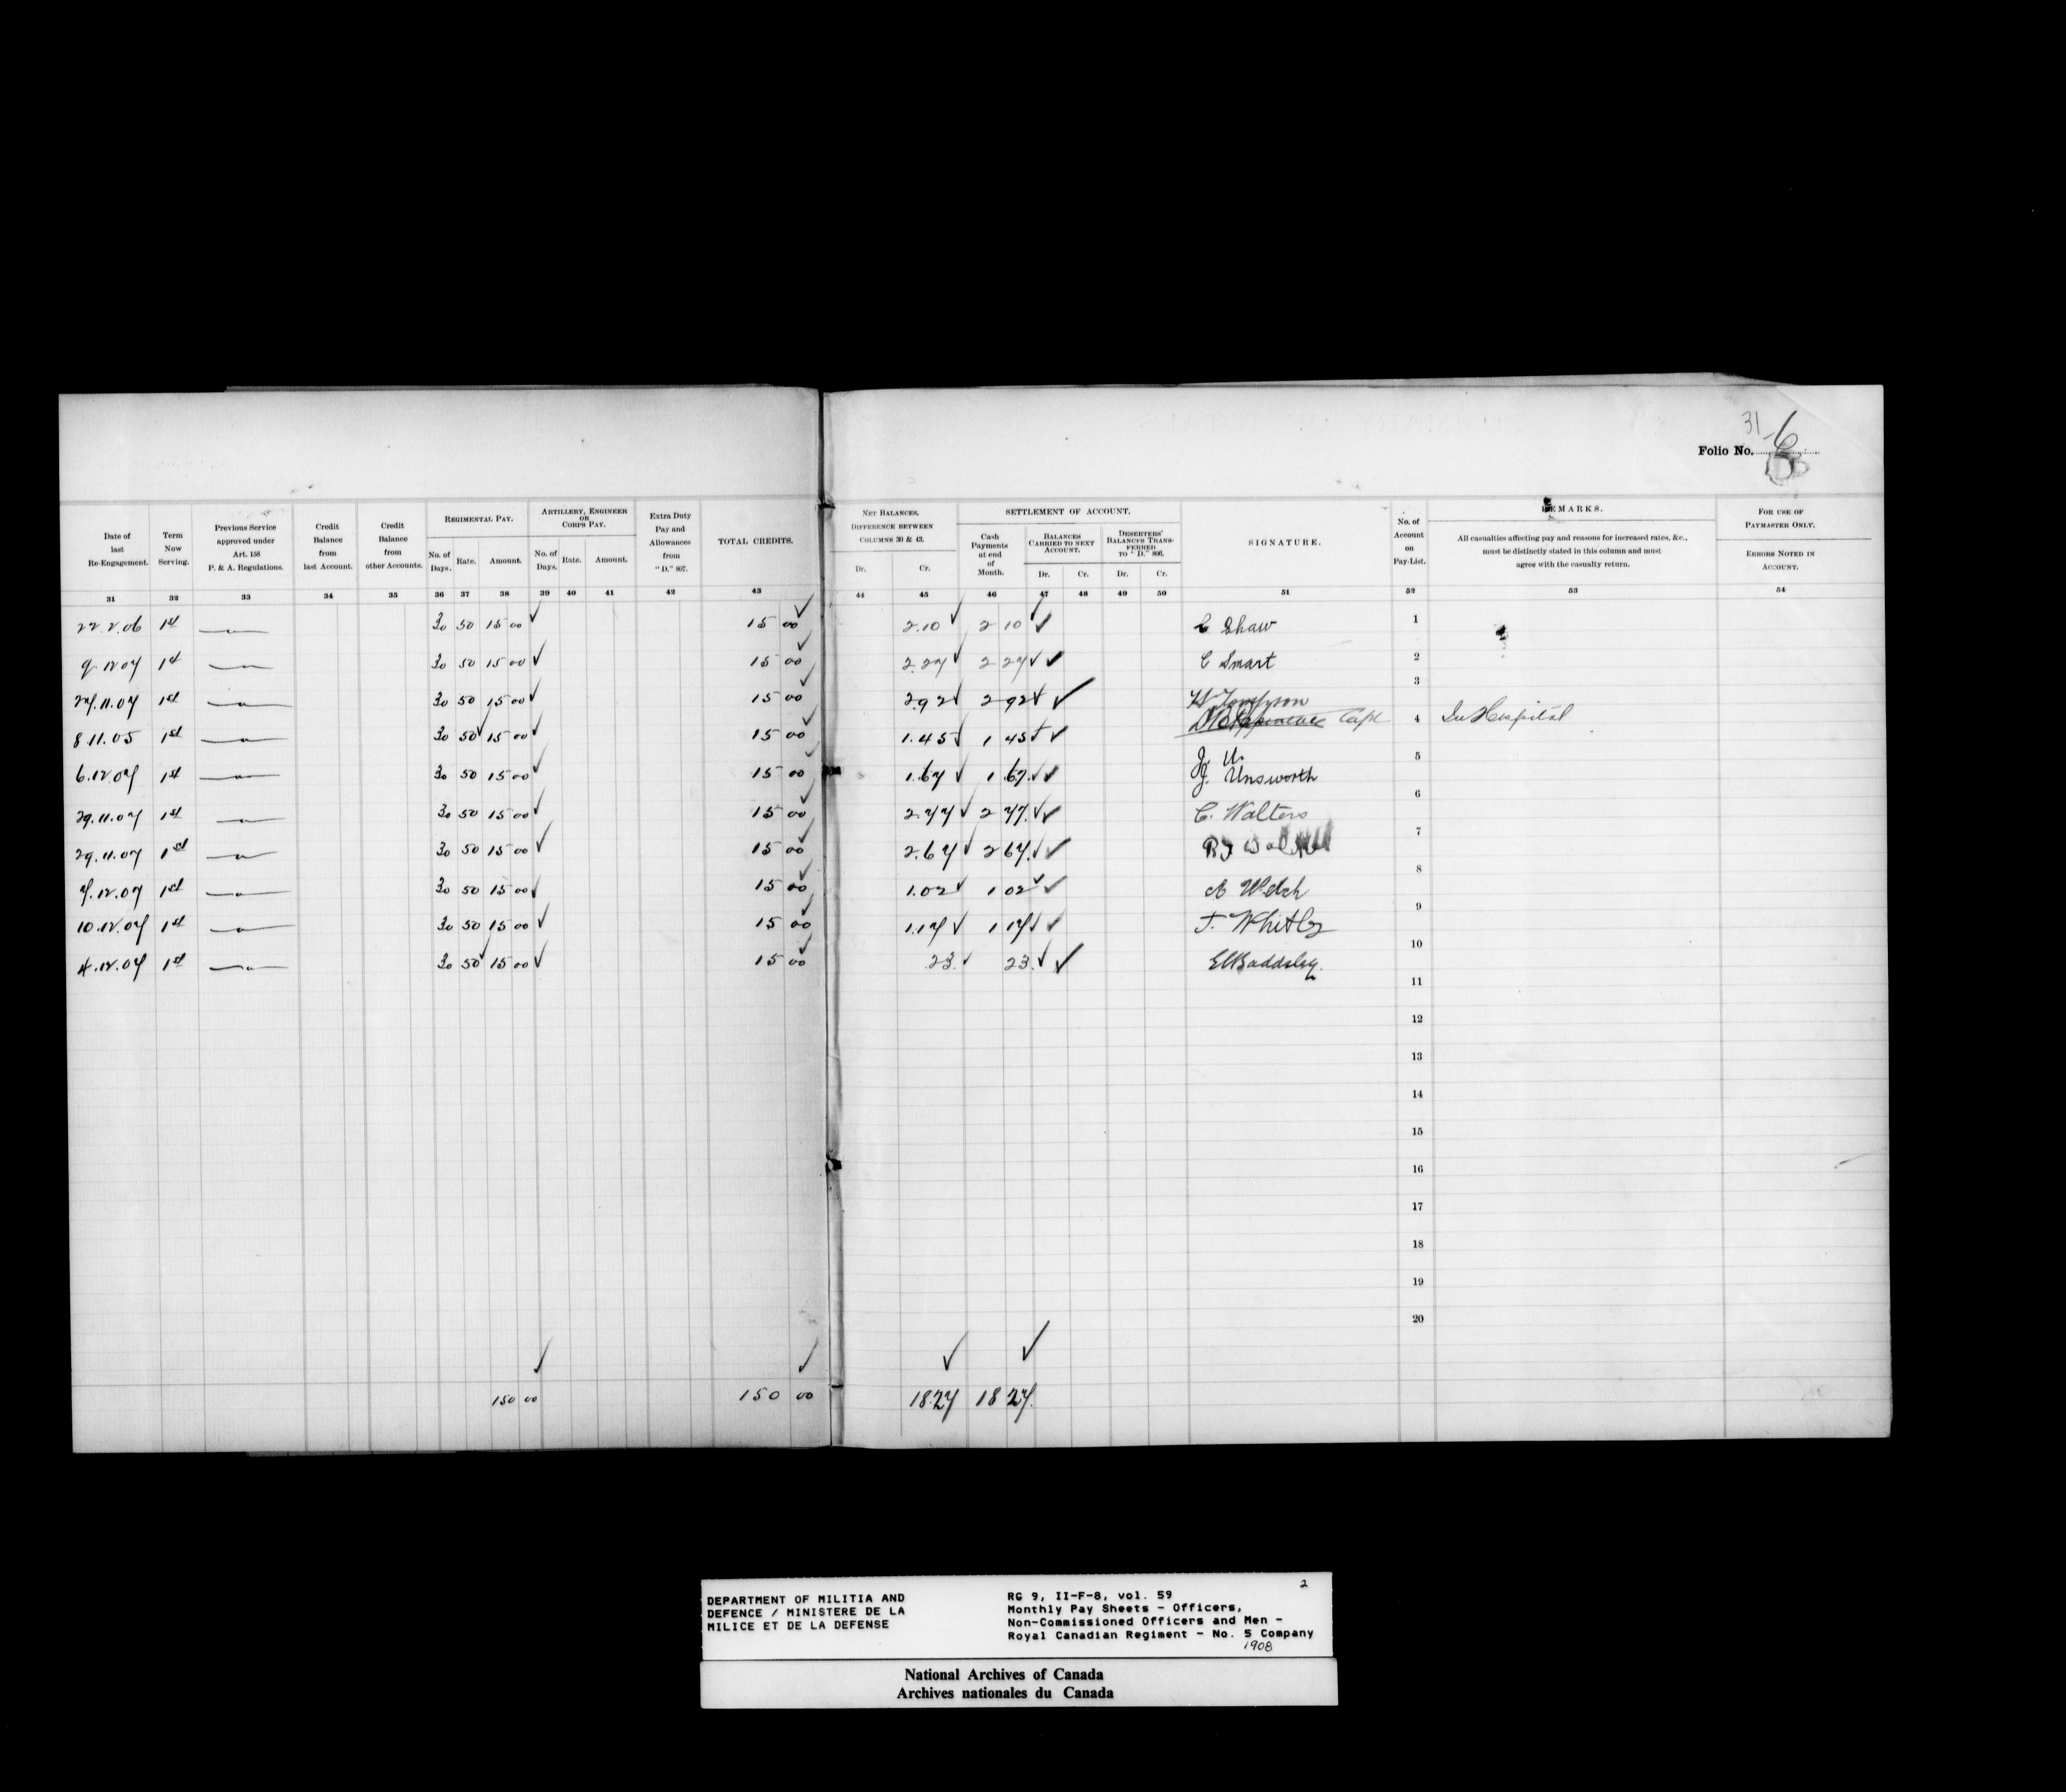 31
Folio No. 6
Date of last Re-Engagement.
Term Now Serving.
Previous Service approved under Art. 158 P. & A. Regulations.
Credit Balance from last Account.
Credit Balance from other Accounts.
REGIMENTAL PAY.
No. of Days.
Rate.
Amount.
ARTILLERY, ENGINEER OR CORPS PAY.
No. of Days.
Rate.
Amount.
Extra Duty Pay and Allowances from "D." 807.
TOTAL CREDITS.
NET BALANCES, DIFFERENCE BETWEEN COLUMNS 30 & 43.
Dr.
Cr.
SETTLEMENT OF ACCOUNT.
Cash Payments at end of Month.
BALANCES CARRIED TO NEXT ACCOUNT.
Dr.
Cr.
DESERTERS' BALANCES TRANSFERRED TO "D." 806.
Dr.
Cr.
SIGNATURE.
No. of Account on Pay-List.
REMARKS.
All casualties affecting pay and reasons for increased rates, &c., must be distinctly stated in this column and must agree with the casualty return.
FOR USE OF PAYMASTER ONLY.
ERRORS NOTED IN ACCOUNT.
31 32 33 34 35 36 37 38 39 40 41 42 43 44 45 46 47 48 49 50 51 52 53 54
22.2.06 1st 30 50 15 00 15 00 2.10 2 10 C Shaw 1
9.12.07 1st 30 50 15 00 15 00 2.27 2 27 C Smart 2
27.11.07 1st 30 50 15 00 15 00 2.92 2 92 3
8.11.05 1st 30 50 15 00 15 00 1.45 1 45 Capt 4 In Hospital
6.12.07 1st 30 50 15 00 15 00 1.67 1 67. J. U. 5
J. Unsworth
29.11.07 1st 30 50 15 00 15 00 2.77 2 77. C. Walters 6
29.11.07 1st 30 50 15 00 15 00 2.67 2 67. 7
7.12.07 1st 30 50 15 00 15 00 1.02 1 02 A Welch 8
10.12.07 1st 30 50 15 00 15 00 1.17 1 17 J. Whitby 9
4.12.07 1st 30 50 15 00 15 00 .23. 23. E Baddeley. 10
11
12
13
14
15
16
17
18
19
20
150 00 150 00 18.27 18 27.
DEPARTMENT OF MILITIA AND
DEFENCE / MINISTERE DE LA
MILICE ET DE LA DEFENSE
2
RG 9, II-F-8, vol. 59
Monthly Pay Sheets - Officers,
Non-Commissioned Officers and Men -
Royal Canadian Regiment - No. 5 Company
1908
National Archives of Canada
Archives nationales du Canada